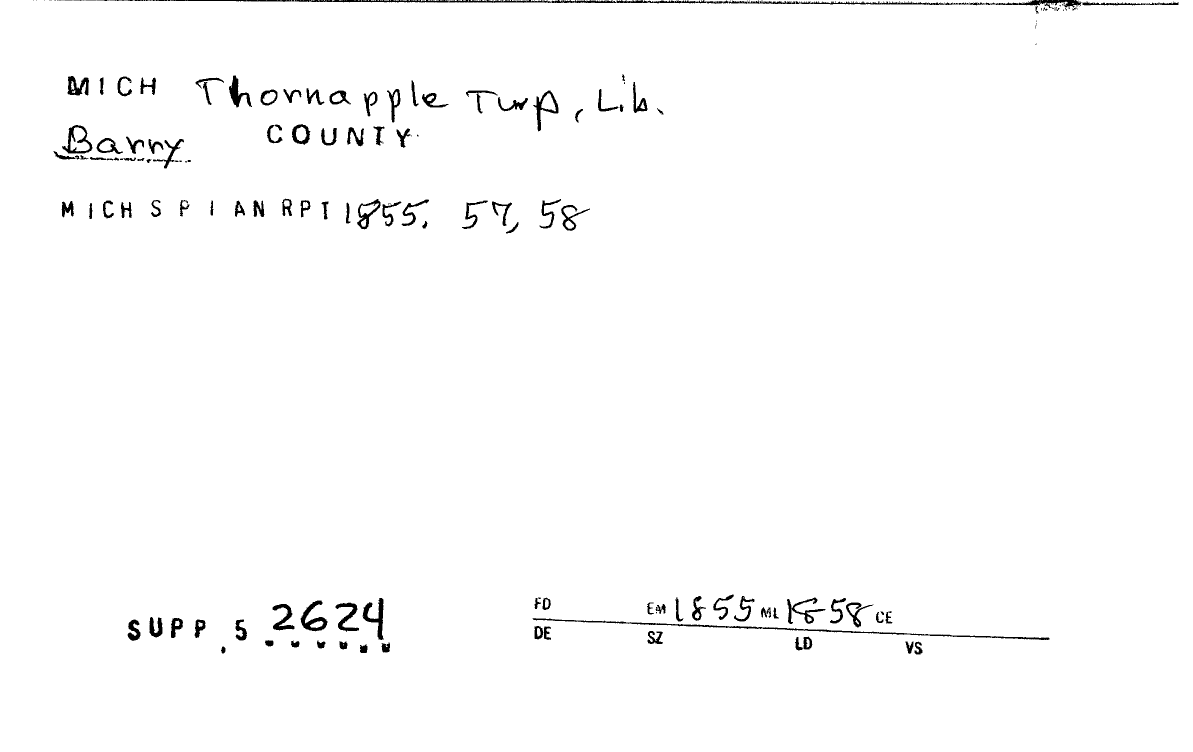 MICH Thornapple Twp, Lib.
Barry COUNTY
MICH S P I AN RPT 1855, 57, 58
SUPP. 5 2624
FD EM 1855 ML 1858 CE
DE SZ LD VS